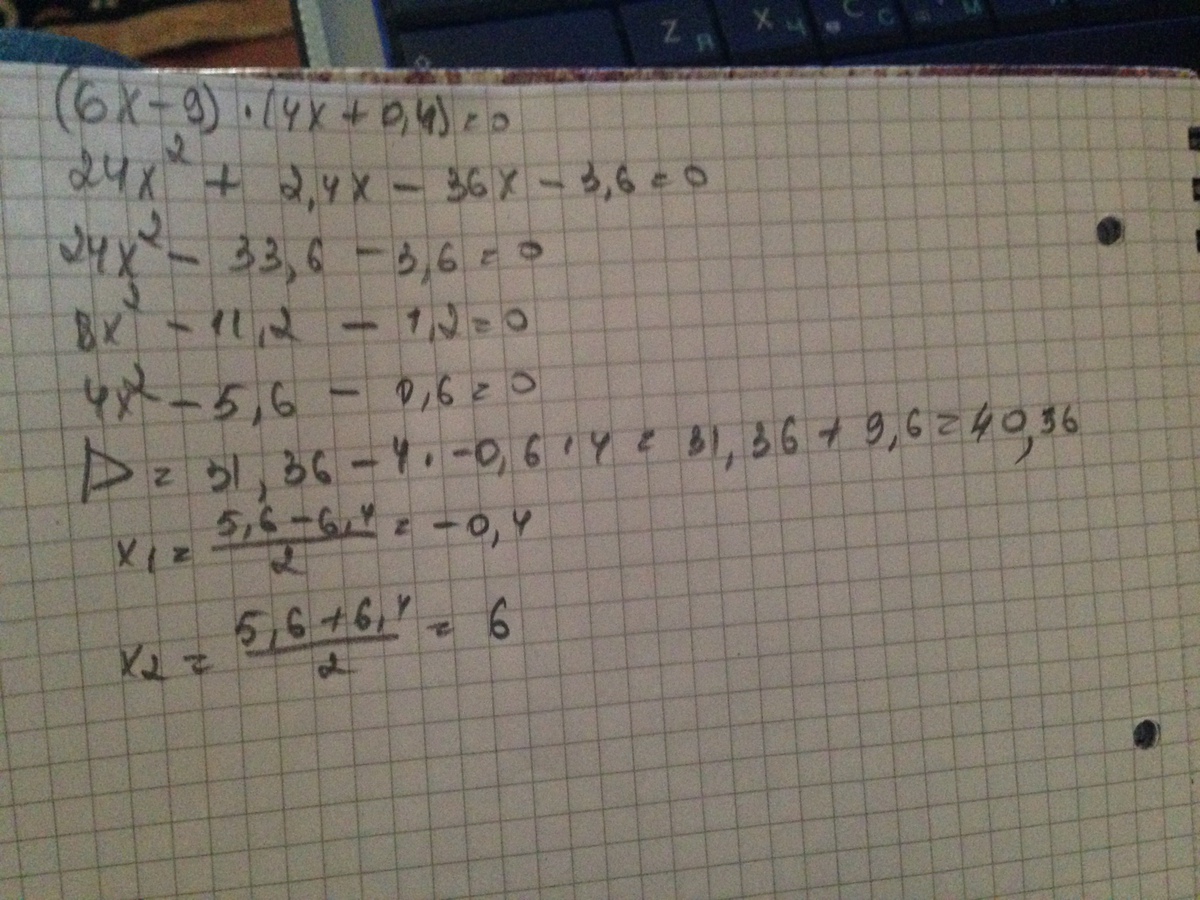 Z Я X Ч C С И
(6x-9)·(4x+0,4)=0
24x² + 2,4x - 36x - 3,6 = 0
24x² - 33,6 - 3,6 = 0
8x² - 11,2 - 1,2 = 0
4x² - 5,6 - 0,6 = 0
D = 31,36 - 4 · -0,6 · 4 = 31,36 + 9,6 = 40,36
x1 = (5,6 - 6,4)/2 = -0,4
x2 = (5,6 + 6,4)/2 = 6